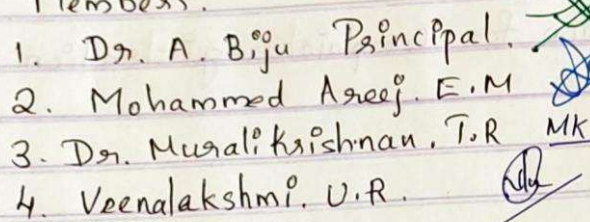 Members.
1. Dr. A. Biju Principal.
2. Mohammed Areej. E.M
3. Dr. Muralikrishnan. T.R MK
4. Veenalakshmi. U.R.